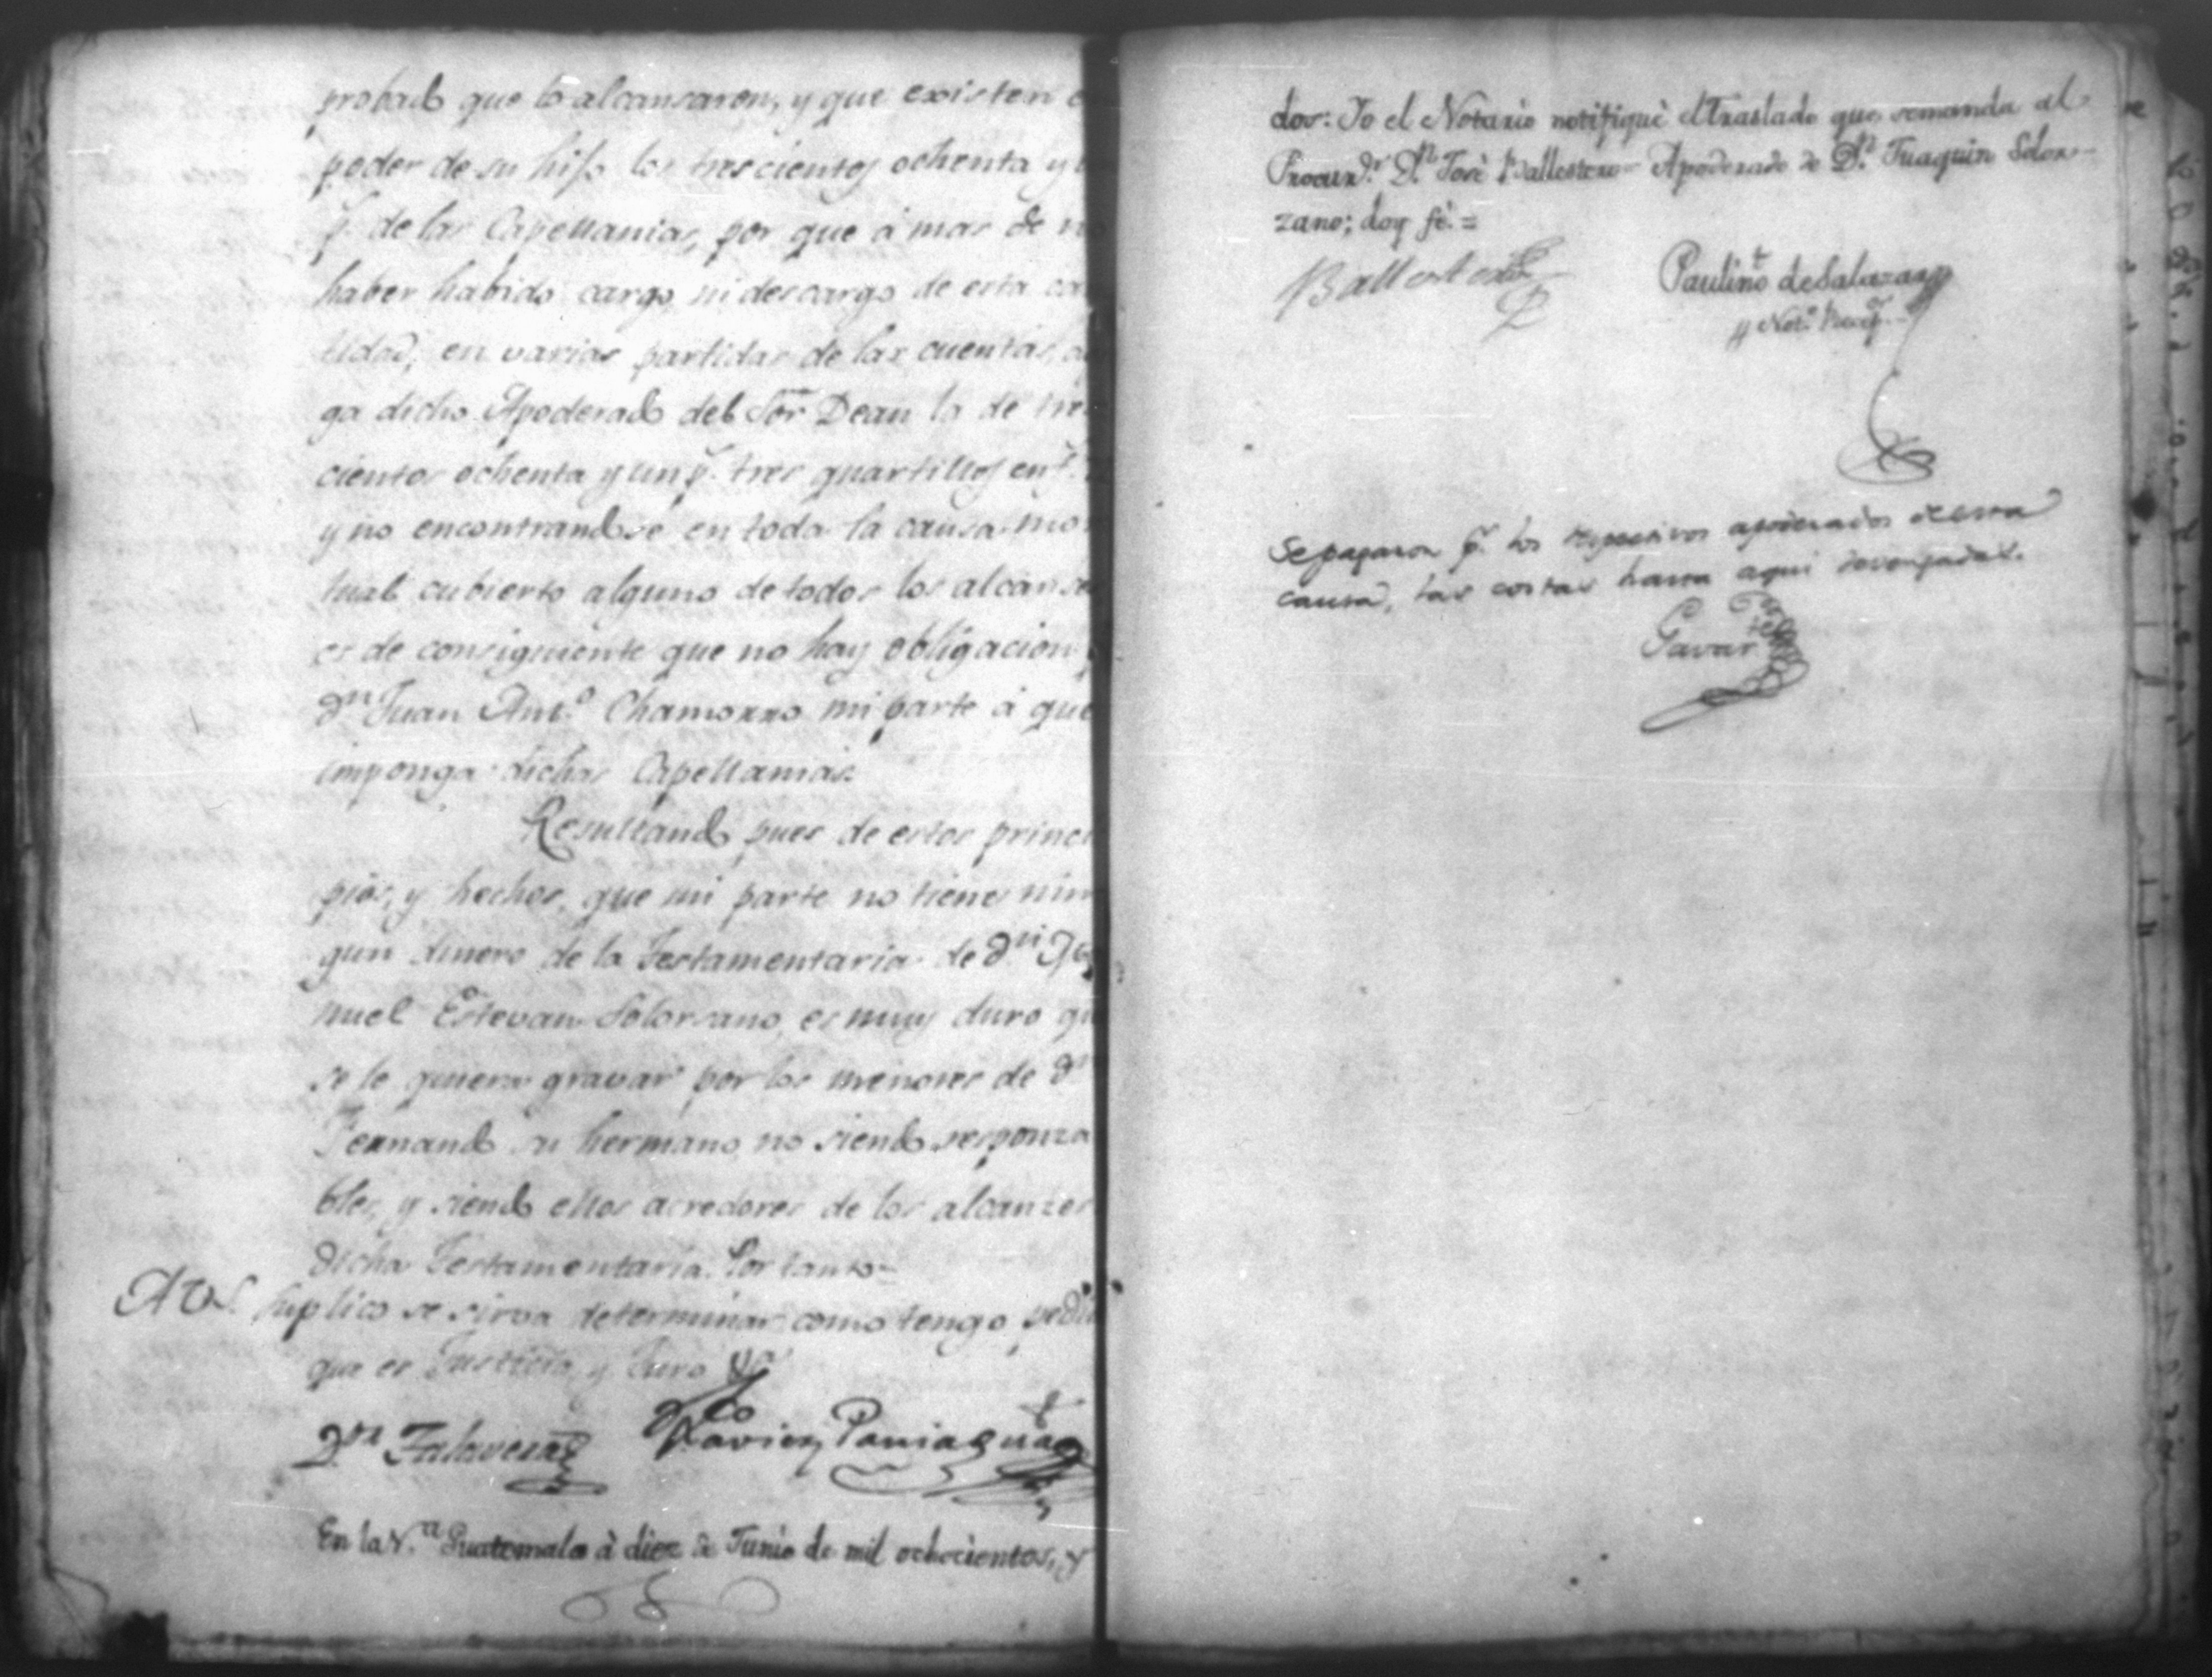 probado que lo alcansaron, y que existen e
poder de su hijo los trescientos ochenta y
p.s de las Capellanias, por que á mas de n
haber habido cargo, ni descargo de esta can
tidad, en varias partidas de las cuentas, a
ga dicho Apoderado del Sor Dean la de tres
cientos ochenta y un p.s tres quartillos en
y no encontrandose en toda la causa mor
tual cubierto alguno de todos los alcanses
es de consiguiente que no hay obligacion
dn Juan Ant.o Chamorro mi parte á que
imponga dichas Capellanias.
Resultando pues de estos princi
pios, y hechos, que mi parte no tiene nin
gun dinero de la Testamentaria de dn Ma
nuel Estevan Solorsano, es muy duro qu
se le quiera gravar por los menores de dn
Fernando su hermano, no siendo responza
bles, y siendo ellos acredores de los alcanzes
dicha Testamentaria. Por tanto=
A V.S. suplico se sirva determinar como tengo pedi
que es Justicia, y Juro &a
Dor Talavera Xavier Paniagua
En la N.a Guatemala à diez de Junio de mil ochocientos, y
dos: Yo el Notario notifiquè el Traslado que se manda al
Procur.dr D.n José Ballestero Apoderado de D.n Juaquin Solor-
zano; doy fé.=
Ballestero
Paulino de Salazar
y Not.o Recep.or
Se pagaron p.r los respectivos apoderados de esta
causa, las costas hasta aqui devengadas.
Gavar